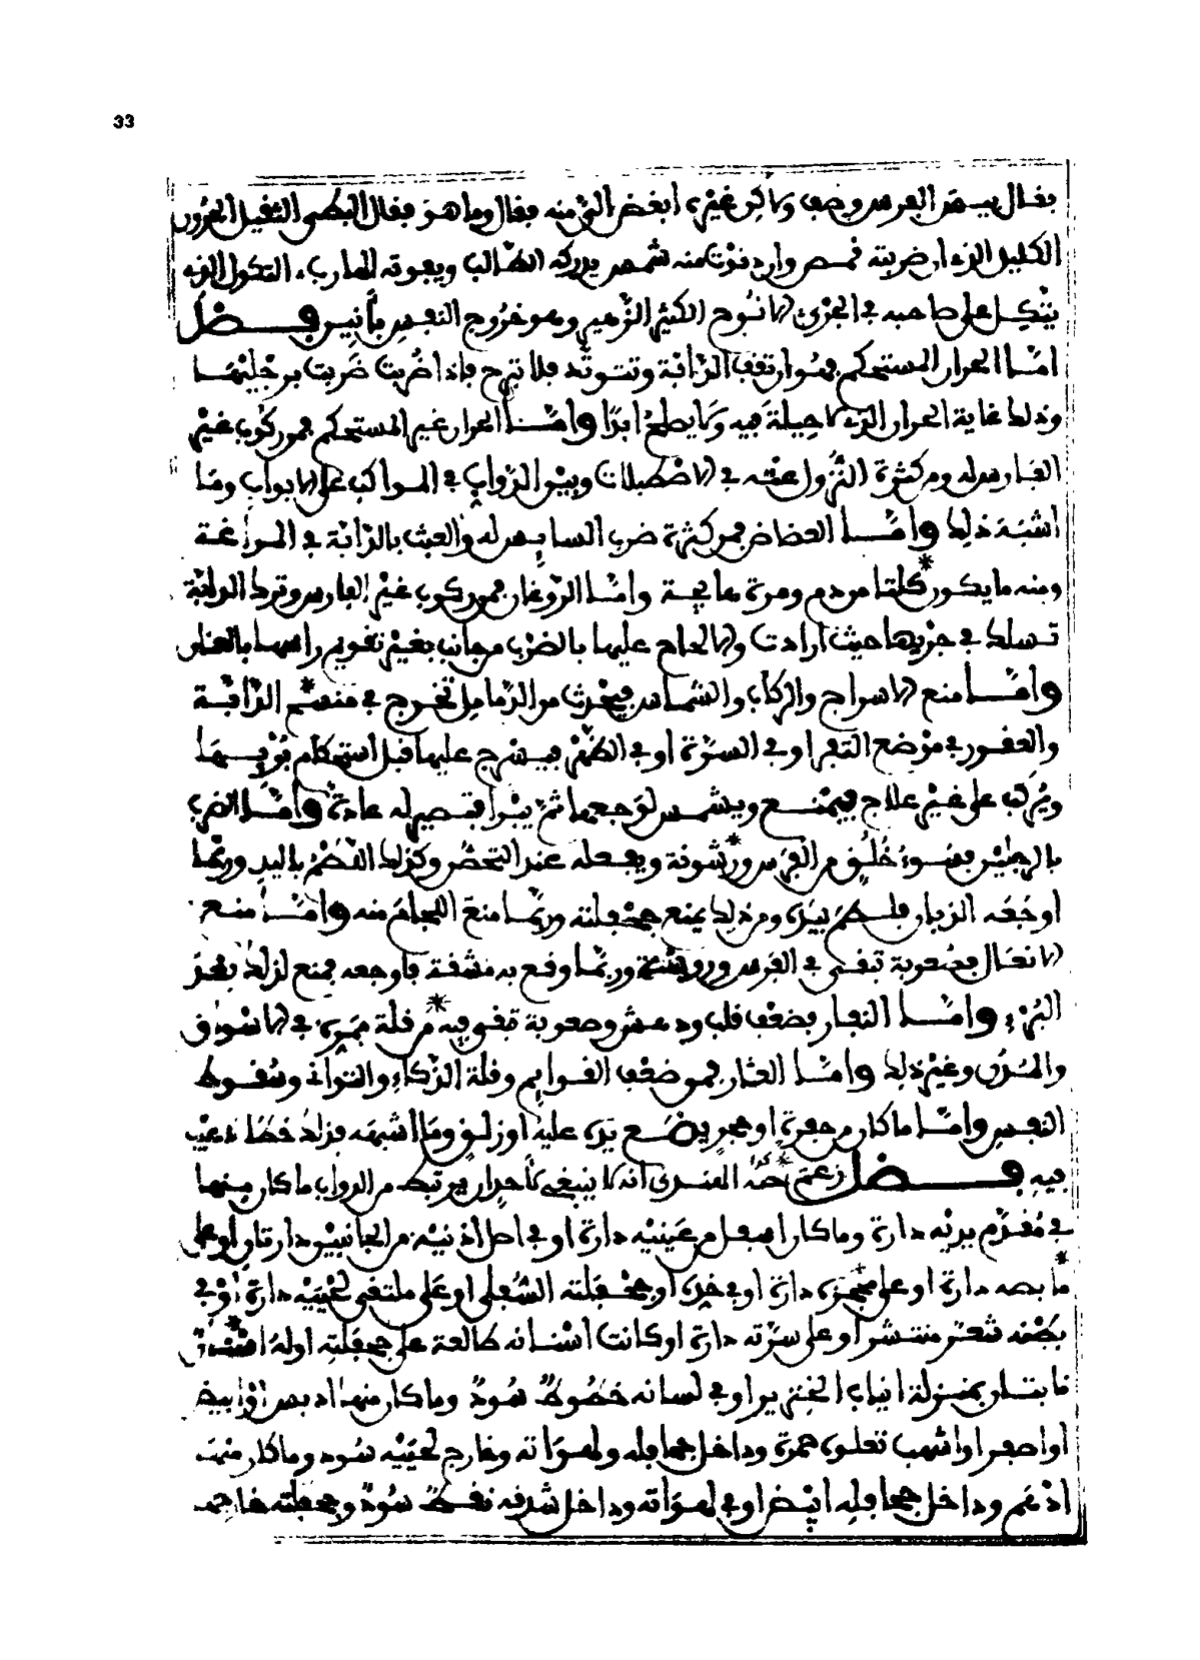 33
فقال بيس هذا الفرس وصف ولاكن غيره أبغض إلي منه فقال وما هو فقال البطي الثقيل الحرون
الكليل الذي إن ضربته قمص وإن دنوت منه شمس يدركه الطالب ويفوته الهارب النكول الذي
يتكل على صاحبه في الجري الانوح الكثير الزحير وهو خروج النفس بأنين فصل
أما الحران المستحكم فهو أن تقف الدابة وتتوتد فلا تبرح فإذا ضربت ضربت برجليها
وذلك غاية الحران الذي لا حيلة فيه ولا يصلح أبدا وأما الحران غير المستحكم فمن ركوب غير
الفارس له ومن كثرة النزول عنه في الاصطبلات وبين الدواب في المواكب على الابواب وما
أشبه ذلك وأما العضاض فمن كثرة ضرب السايس له والعبث بالدابة في المراغة
ومنه ما يكون كلبا من دم ومرة هايجة وأما الروغان فمن ركوب غير الفارس وترك الدابة
تسلك في جريها حيث أرادت والالحاح عليها بالضرب من جانب بغير تقويم رأسها بالعنان
وأما منع الاسراج والركاب والشماس فيحدث من الدمامل تخرج في منسج الدابة
والعقور في موضع التفر أو في السرة أو في الظهر فيسرج عليها قبل استحكام بريها
ويركب على غير علاج فيمنع ويشمس لوجعها ثم يبرأ فتصير له عادة وأما الضرب
بالرجلين فسوء خلق من الفرس ورشونة ويفعله عند التحضر وكذلك اللطم باليد وربما
أوجعه الزيار فلطم بيده ومن ذلك يمنع جحفلته وربما منع اللجام منه وأما منع
الانعال فصعوبة تبقى في الفرس وربما وقع به مشقة فأوجعه فمنع لذلك بعد
البرء وأما النفار فضعف قلب ودهش وصعوبة تبقى فيه من قلة ممره في الاسواق
والمدن وغير ذلك وأما العثار فمن ضعف القوايم وقلة الذكاء والتواني وسقوط
النفس وأما ما كان من حفرة أو حجر يضع يده عليه أو زلق وما أشبهه فذلك خطأ لا عيب
فيه فصل زعم حنه الهندي أنه لا ينبغي لأحد أن يرتبط من الدواب ما كان منها
في مقدم يديه دارة وما كان أسفل من عينيه دارة أو في أصل أذنيه من الجانبين دارتان أو على
مابضه دارة أو على محجره دارة أو في خده أو جحفلته السفلى أو على ملتقى لحييه دارة أو في
بطنه شعر منتشر أو على سرته دارة أو كانت أسنانه طالعة على جحفلته أوله
نابتان بمنزلة أنياب الخنزير أو في لسانه خطوط سود وما كان منها أدبس أو أبيض
أو أصفر أو أشهب تعلوه حمرة وداخل جحافله ولهواته وخارج لحييه سود وما كان منها
أدغم وداخل جحافله أبيض أو في لهواته وداخل شدقه نقط سود وجحفلته خارجه